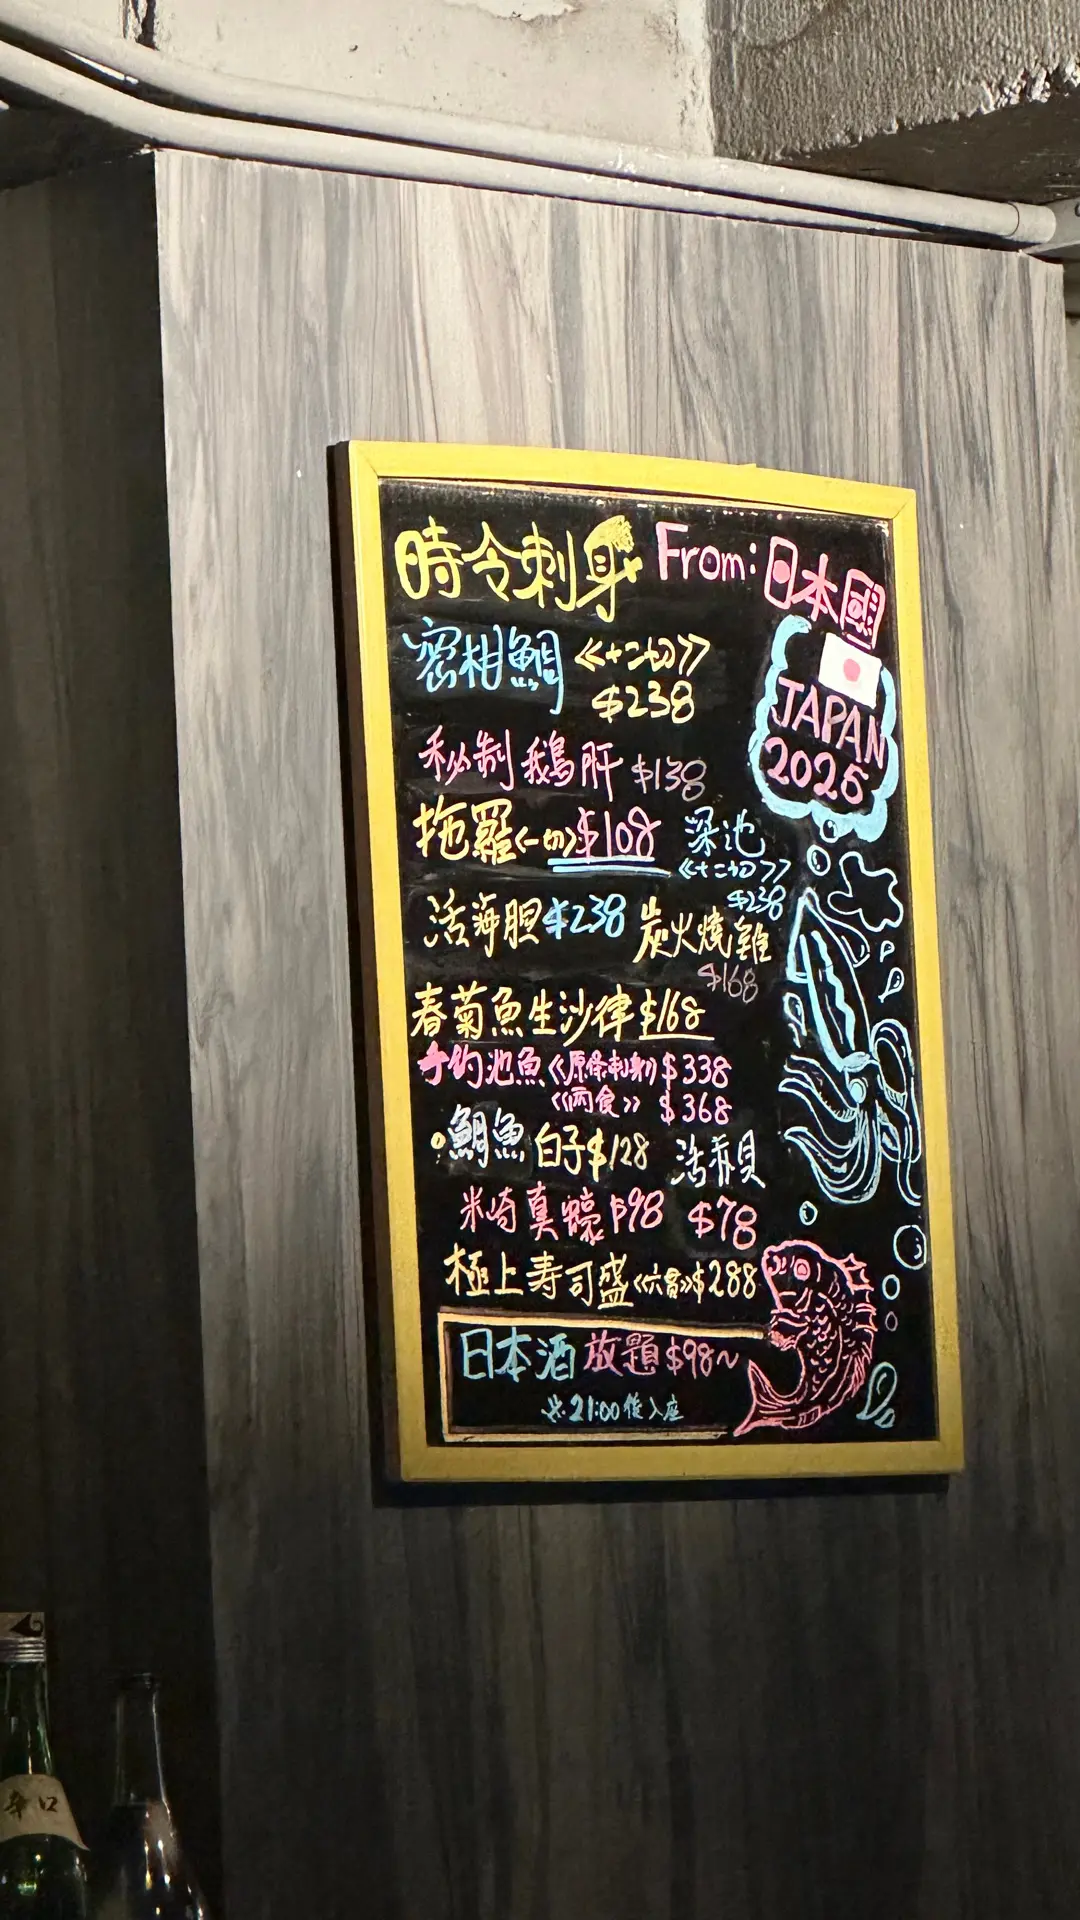 時令刺身 From: 日本國
密柑鯛 《十二切》
$238
JAPAN
2025
秘制鵝肝 $138
拖羅 (一切) $108
深池
《十二切》
$238
活海胆 $238
炭火燒雞
$168
春菊魚生沙律 $168
手釣池魚 《原條刺身》 $338
《兩食》 $368
鯛魚白子 $128
活赤貝
$78
米崎真蠔 $98
極上寿司盛 《六貫》 $288
日本酒放題 $98~
21:00後入座
辛口